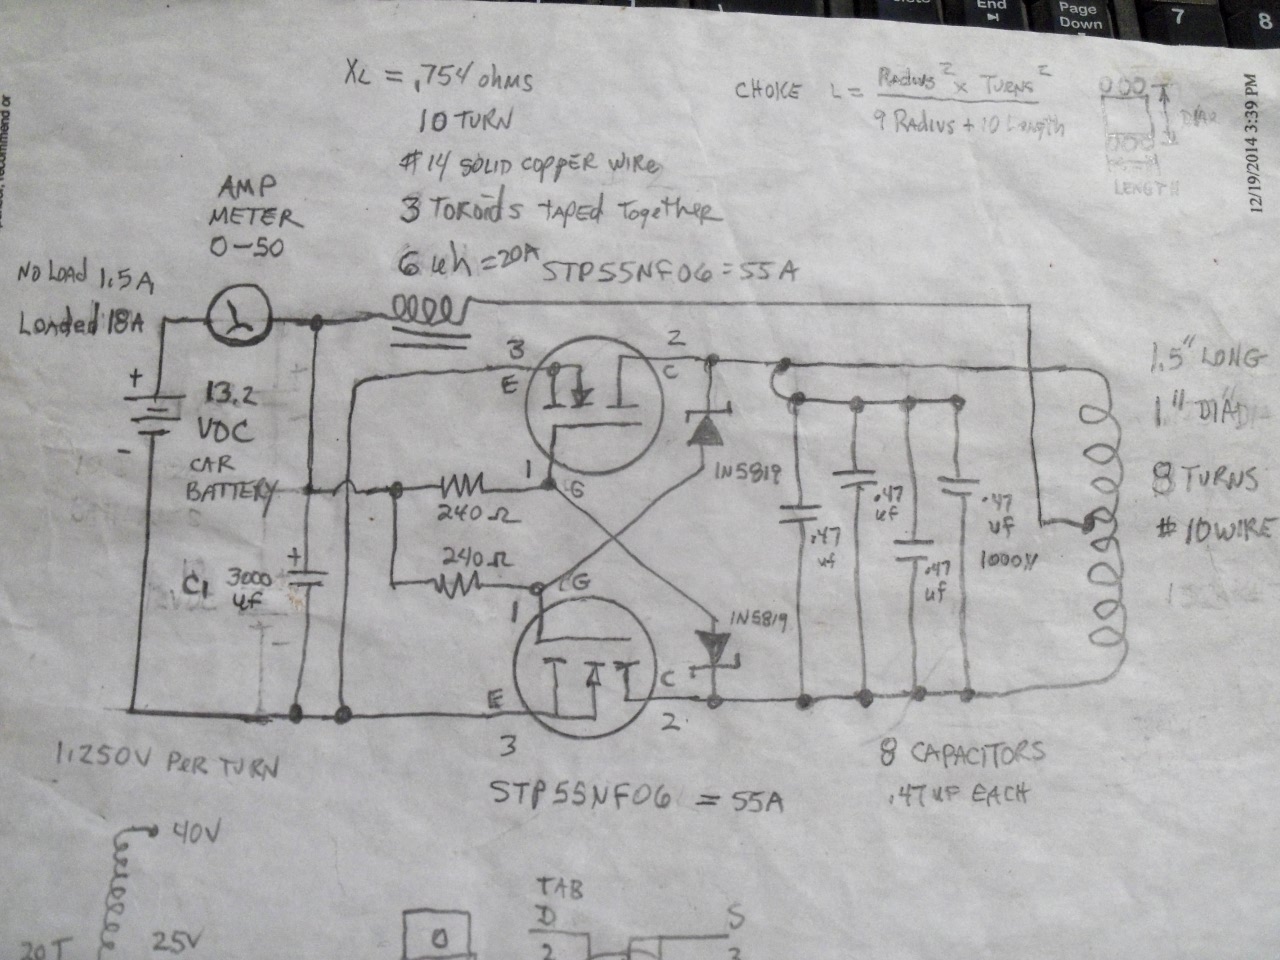 End
Page
Down
7
8
12/19/2014 3:39 PM
XL = .754 ohms
10 TURN
#14 SOLID COPPER WIRE
3 TOROIDS TAPED TOGETHER
6 uh = 20A
CHOKE L = Radius² x Turns²
9 Radius + 10 Length
DIAR
LENGTH
AMP
METER
0-50
NO LOAD 1.5A
Loaded 18A
STP55NF06 = 55A
+
13.2
VDC
CAR
BATTERY
-
3
E
2
C
1
G
240Ω
240Ω
1
G
1N5819
1N5819
+
C1
3000
uf
E
3
C
2
.47
uf
.47
uf
.47
uf
.47
uf
1000V
1.5" LONG
1" DIA
8 TURNS
#10 WIRE
1.250V PER TURN
STP55NF06 = 55A
8 CAPACITORS
.47 UF EACH
40V
25V
20T
0
TAB
D
2
S
3